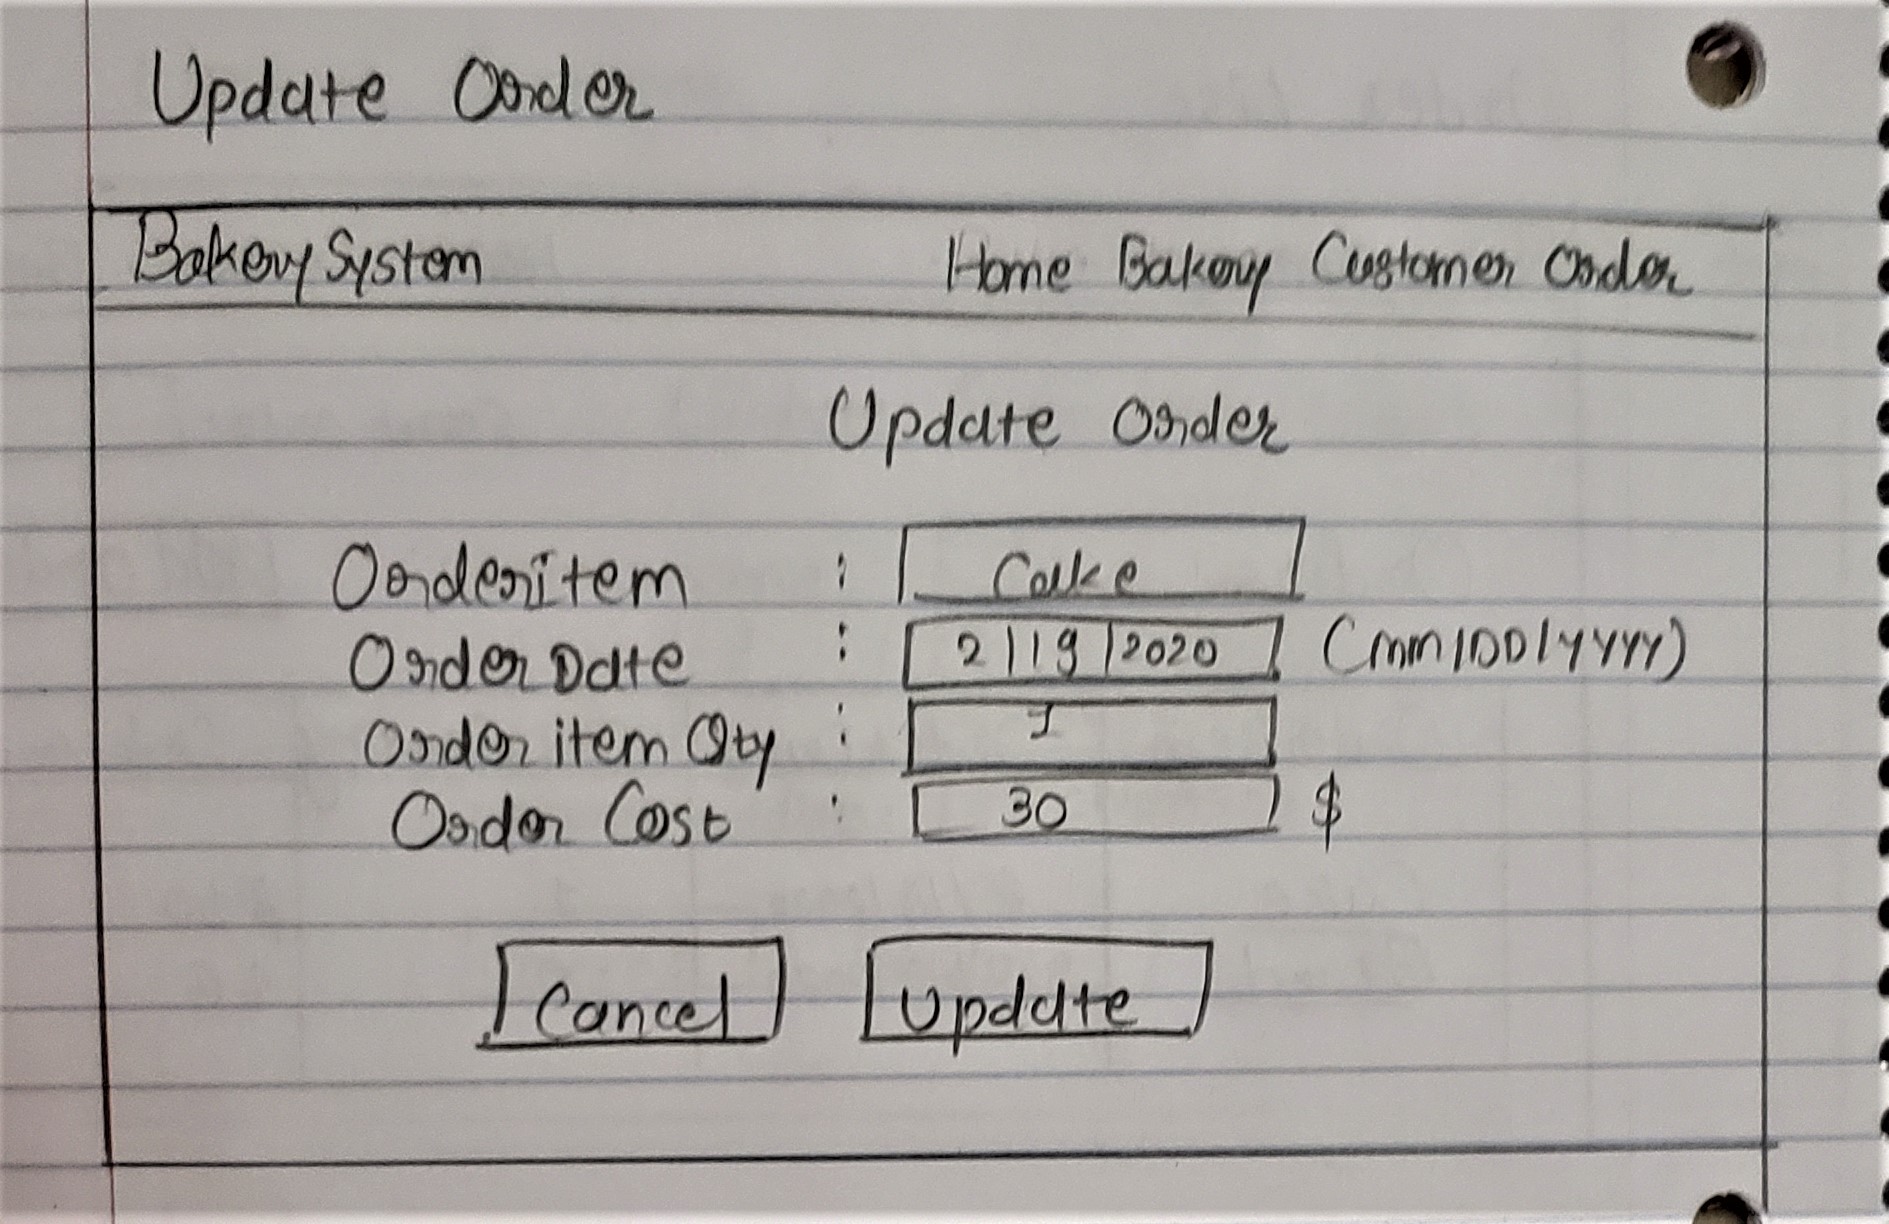 Update Order
Bakery System Home Bakery Customer Order
Update Order
Orderitem : Cake
Order Date : 2/19/2020 (MM/DD/YYYY)
Order item Qty : 1
Order Cost : 30 $
Cancel Update